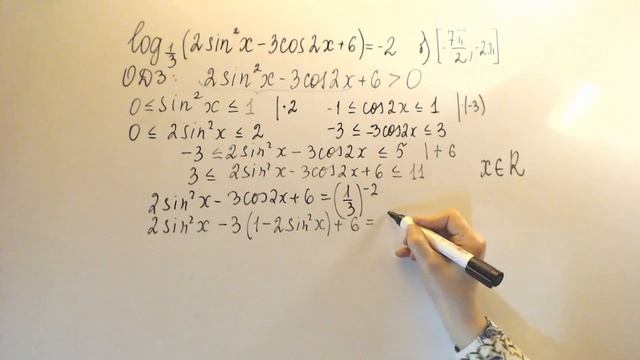 log_{1/3}(2sin²x-3cos2x+6)=-2 б) [-7π/2, -2π]
ОДЗ: 2sin²x-3cos2x+6>0
0≤sin²x≤1 |·2 -1≤cos2x≤1 |·(-3)
0≤2sin²x≤2 -3≤-3cos2x≤3
-3≤2sin²x-3cos2x≤5 |+6
3≤2sin²x-3cos2x+6≤11 x∈R
2sin²x-3cos2x+6=(1/3)^{-2}
2sin²x-3(1-2sin²x)+6=